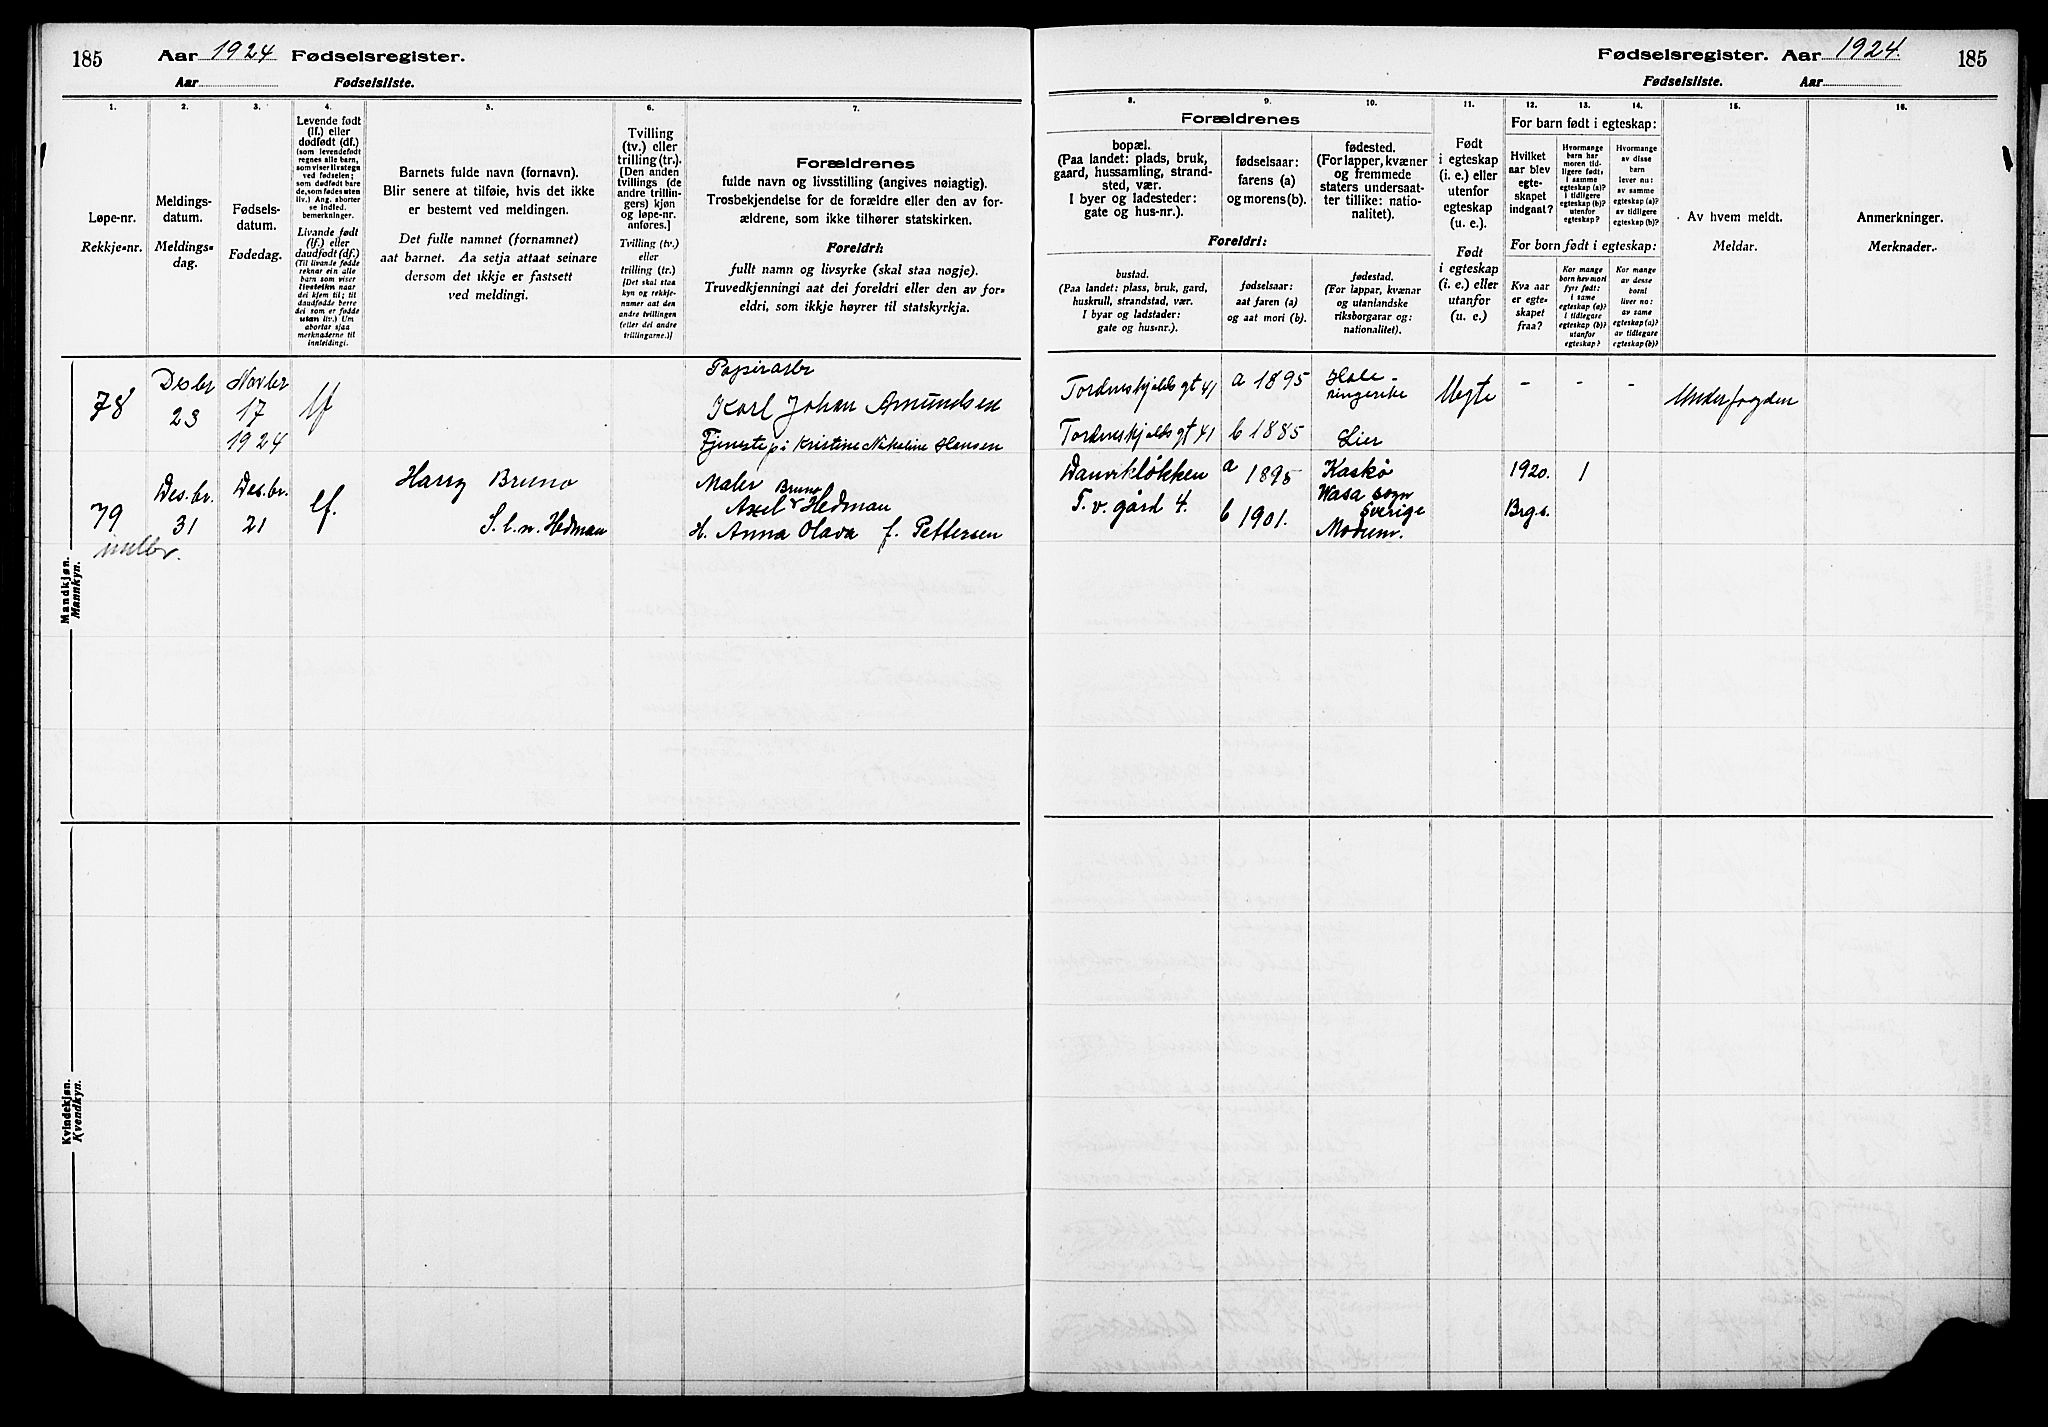 185 Aar 1924 Fødselsregister.
Aar Fødselsliste.
1. 2. 3. 4. 5. 6. 7.
Løpe-nr.
Rekkje-nr.
Meldings-
datum.
Meldings-
dag.
Fødsels-
datum.
Fødedag.
Levende født
(lf.) eller
dødfødt (df.)
(som levendefødt
regnes alle barn,
som viser livstegn
ved fødselen;
som dødfødt bare
de, som fødes uten
liv.) Ang. aborter
se Indled.
bemerkninger.
Livande født
(lf.) eller
daudfødt (df.)
(Til livande fødde
reknar ein alle
barn som viser
livsteikn naar
dei kjem til; til
daudfødde berre
dei som er fødde
utan liv.) Um
abortar sjaa
merknaderne til
innleidingi.
Barnets fulde navn (fornavn).
Blir senere at tilføie, hvis det ikke
er bestemt ved meldingen.
Det fulle namnet (fornamnet)
aat barnet. Aa setja attaat seinare
dersom det ikkje er fastsett
ved meldingi.
Tvilling
(tv.) eller
trilling (tr.).
[Den anden
tvillings (de
andre trillin-
gers) kjøn
og løpe-nr.
anføres.]
Tvilling (tv.)
eller
trilling (tr.)
[Det skal staa
kyn og rekkje-
numer aat den
andre tvillingen
(eller dei andre
trillingarne.)]
Forældrenes
fulde navn og livsstilling (angives nøiagtig).
Trosbekjendelse for de forældre eller den av for-
ældrene, som ikke tilhører statskirken.
Foreldri:
fullt namn og livsyrke (skal staa nøgje).
Truvedkjenningi aat dei foreldri eller den av for-
eldri, som ikkje høyrer til statskyrkja.
Mandkjøn.
Mannkyn.
78
Desbr
23
Novbr
17
1924
lf
Papirarbr
Karl Johan Amundsen
Tjenestepi Kristine Nikoline Hansen
79
Des.br.
31
Des.br.
21
lf.
Harry Bruno
S. l. n. Hedman
Maler Bruno
Axel Hedman
H. Anna Olava f. Pettersen
Kvindekjøn.
Kvendkyn.
Fødselsregister. Aar 1924. 185
Fødselsliste. Aar
8. 9. 10. 11. 12. 13. 14. 15. 16.
Forældrenes
bopæl.
(Paa landet: plads, bruk,
gaard, hussamling, strand-
sted, vær.
I byer og ladesteder:
gate og hus-nr.).
fødselsaar:
farens (a)
og morens (b).
fødested.
(For lapper, kvæner
og fremmede
staters undersaat-
ter tillike: natio-
nalitet).
Foreldri:
bustad.
(Paa landet: plass, bruk, gard,
huskrull, strandstad, vær.
I byar og ladstader:
gate og hus-nr.).
fødselsaar:
aat faren (a)
og aat mori (b).
fødestad.
(For lappar, kvænar
og utanlandske
riksborgarar og:
nationalitet).
Født
i egteskap
(i. e.) eller
utenfor
egteskap
(u. e.).
Født
i egteskap
(i. e.) eller
utanfor
(u. e.)
For barn født i egteskap:
Hvilket
aar blev
egte-
skapet
indgaat?
Hvormange
barn har
moren tid-
ligere født:
i samme
egteskap (a)?
i tidligere
egteskap (b)?
utenfor
egteskap?
Hvormange
av disse
barn
lever nu:
av samme
egteskap (a)?
av tidligere
egteskap (b)?
For born født i egteskap:
Kva aar
er egte-
skapet
fraa?
Kor mange
born hev mori
fyrr født:
i same
egteskap (a)?
i tidlegare
egteskap (b)?
utanfor
egteskap?
Kor mange
av desse
borni
liver no:
av same
egteskap (a)?
av tidlegare
egteskap (b)?
Av hvem meldt.
Meldar.
Anmerkninger.
Merknader.
Tordenskjolds gt 41 a 1895 Hole - ringerike
Uegte - - - Underfogden
Tordenskjolds gt 41 b 1885 Lier
Danvikløkken a 1895 Kaskø
Wasa sogn
Sverige
1920. 1
T. v. gård 4. b 1901. Modum. Brgs.